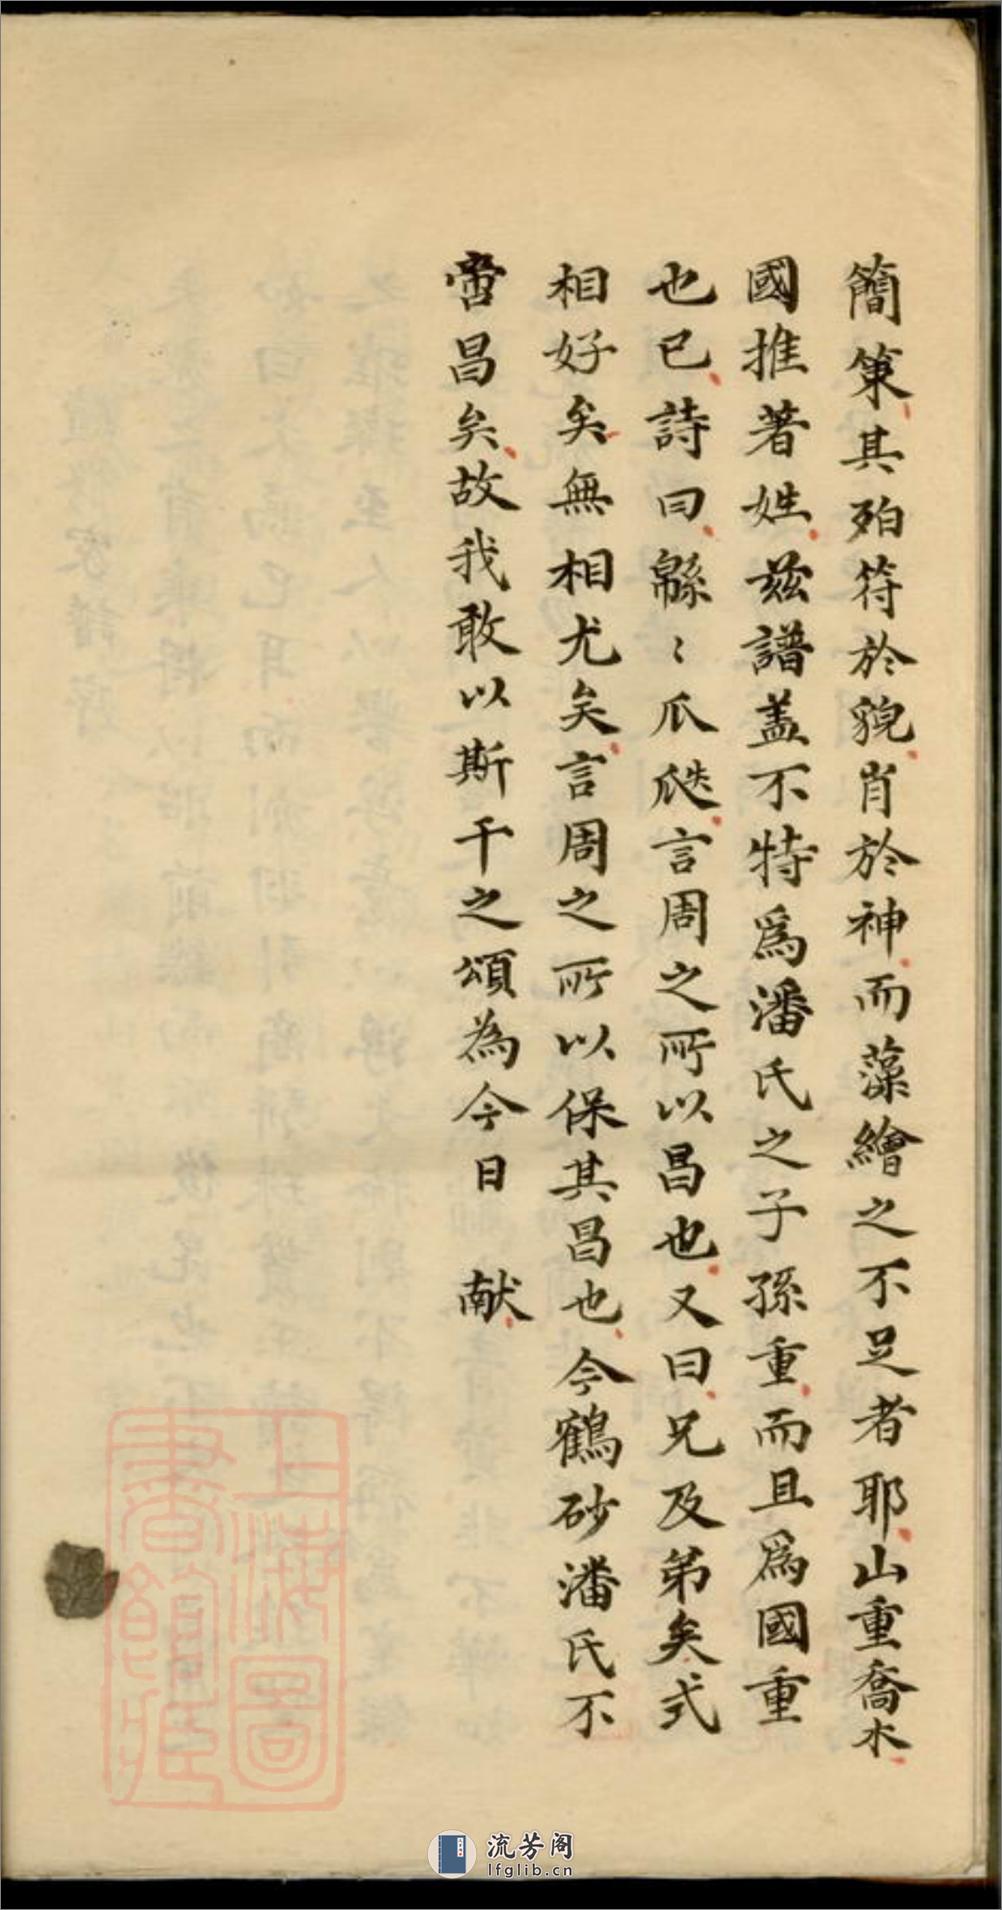 簡策其殆符於貌肖於神而藻繪之不足者耶山重喬木
國推著姓茲譜盖不特爲潘氏之子孫重而且爲國重
也已詩曰緜〻瓜瓞言周之所以昌也又曰兄及弟矣式
相好矣無相尤矣言周之所以保其昌也今鶴砂潘氏不
啻昌矣故我敢以斯干之頌為今日獻
上海圖書館藏
流芳阁
lfglib.cn